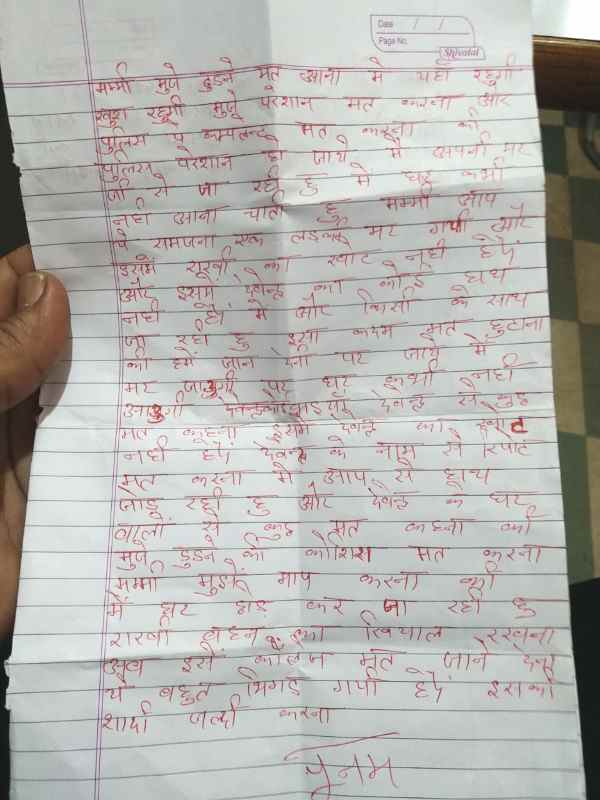 Date / /
Page No.
Shivalal
मम्मी मुजे ढुडने मत आना मे यहाँ रहुगी
खुश रहुगी मुजे परेशान मत करना और
पुलिस पे कम्पलेन्ट मत करना की
पुलिस परेशान हो जाये मे अपनी मर
जी से जा रही हु मे घर कभी
नही आना चाती हु मम्मी आप
ये समजना एक लडकी मर गयी और
इसमे राखी का खोट नही हैं
और इसमे देवेन्द्र का कोई हाथ
नही है मे और किसी के साथ
जा रही हु इसा कदम मत उठाना
की हमे जान देना पर जाये में
मर जाउगी पर घर कभी नही
आउगी देवेन्द्र से कुछ
मत कहना इसमे देवेन्द्र का खोट
नही हैं देवेन्द्र के नाम से रिपोट
मत करना मे आप से हाथ
जोड रही हु और देवेन्द्र के घर
वालो से कुछ मत कहना की
मुजे ढुडने की कोशिश मत करना
मम्मी मुझे माप करना की
में घर छोड कर जा रही हु
राखी बहन का खियाल रखना
अब इसे कॉलेज मत जाने देना
ये बहुत बिगड गयी हैं इसकी
शादी जल्दी करना
पूनम